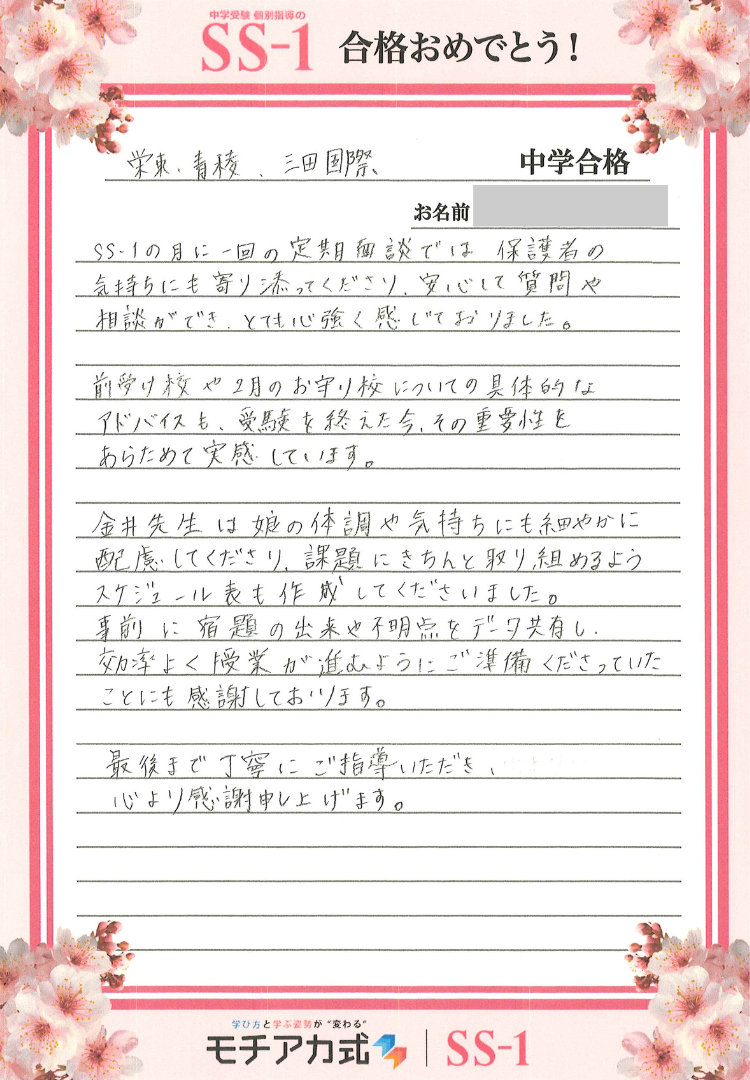 中学受験 個別指導の
SS-1 合格おめでとう!
栄東、青稜、三田国際、 中学合格
お名前
SS-1の月に一回の定期面談では 保護者の
気持ちにも寄り添ってくださり、安心して質問や
相談ができ、とても心強く感じておりました。
前受け校や2月のお守り校についての具体的な
アドバイスも、受験を終えた今、その重要性を
あらためて実感しています。
金井先生は娘の体調や気持ちにも細やかに
配慮してくださり、課題にきちんと取り組めるよう
スケジュール表も作成してくださいました。
事前に宿題の出来や不明点をデータ共有し、
効率よく授業が進むようにご準備くださっていた
ことにも感謝しております。
最後まで丁寧にご指導いただき、
心より感謝申し上げます。
学び方と学ぶ姿勢が“変わる”
モチアカ式 | SS-1